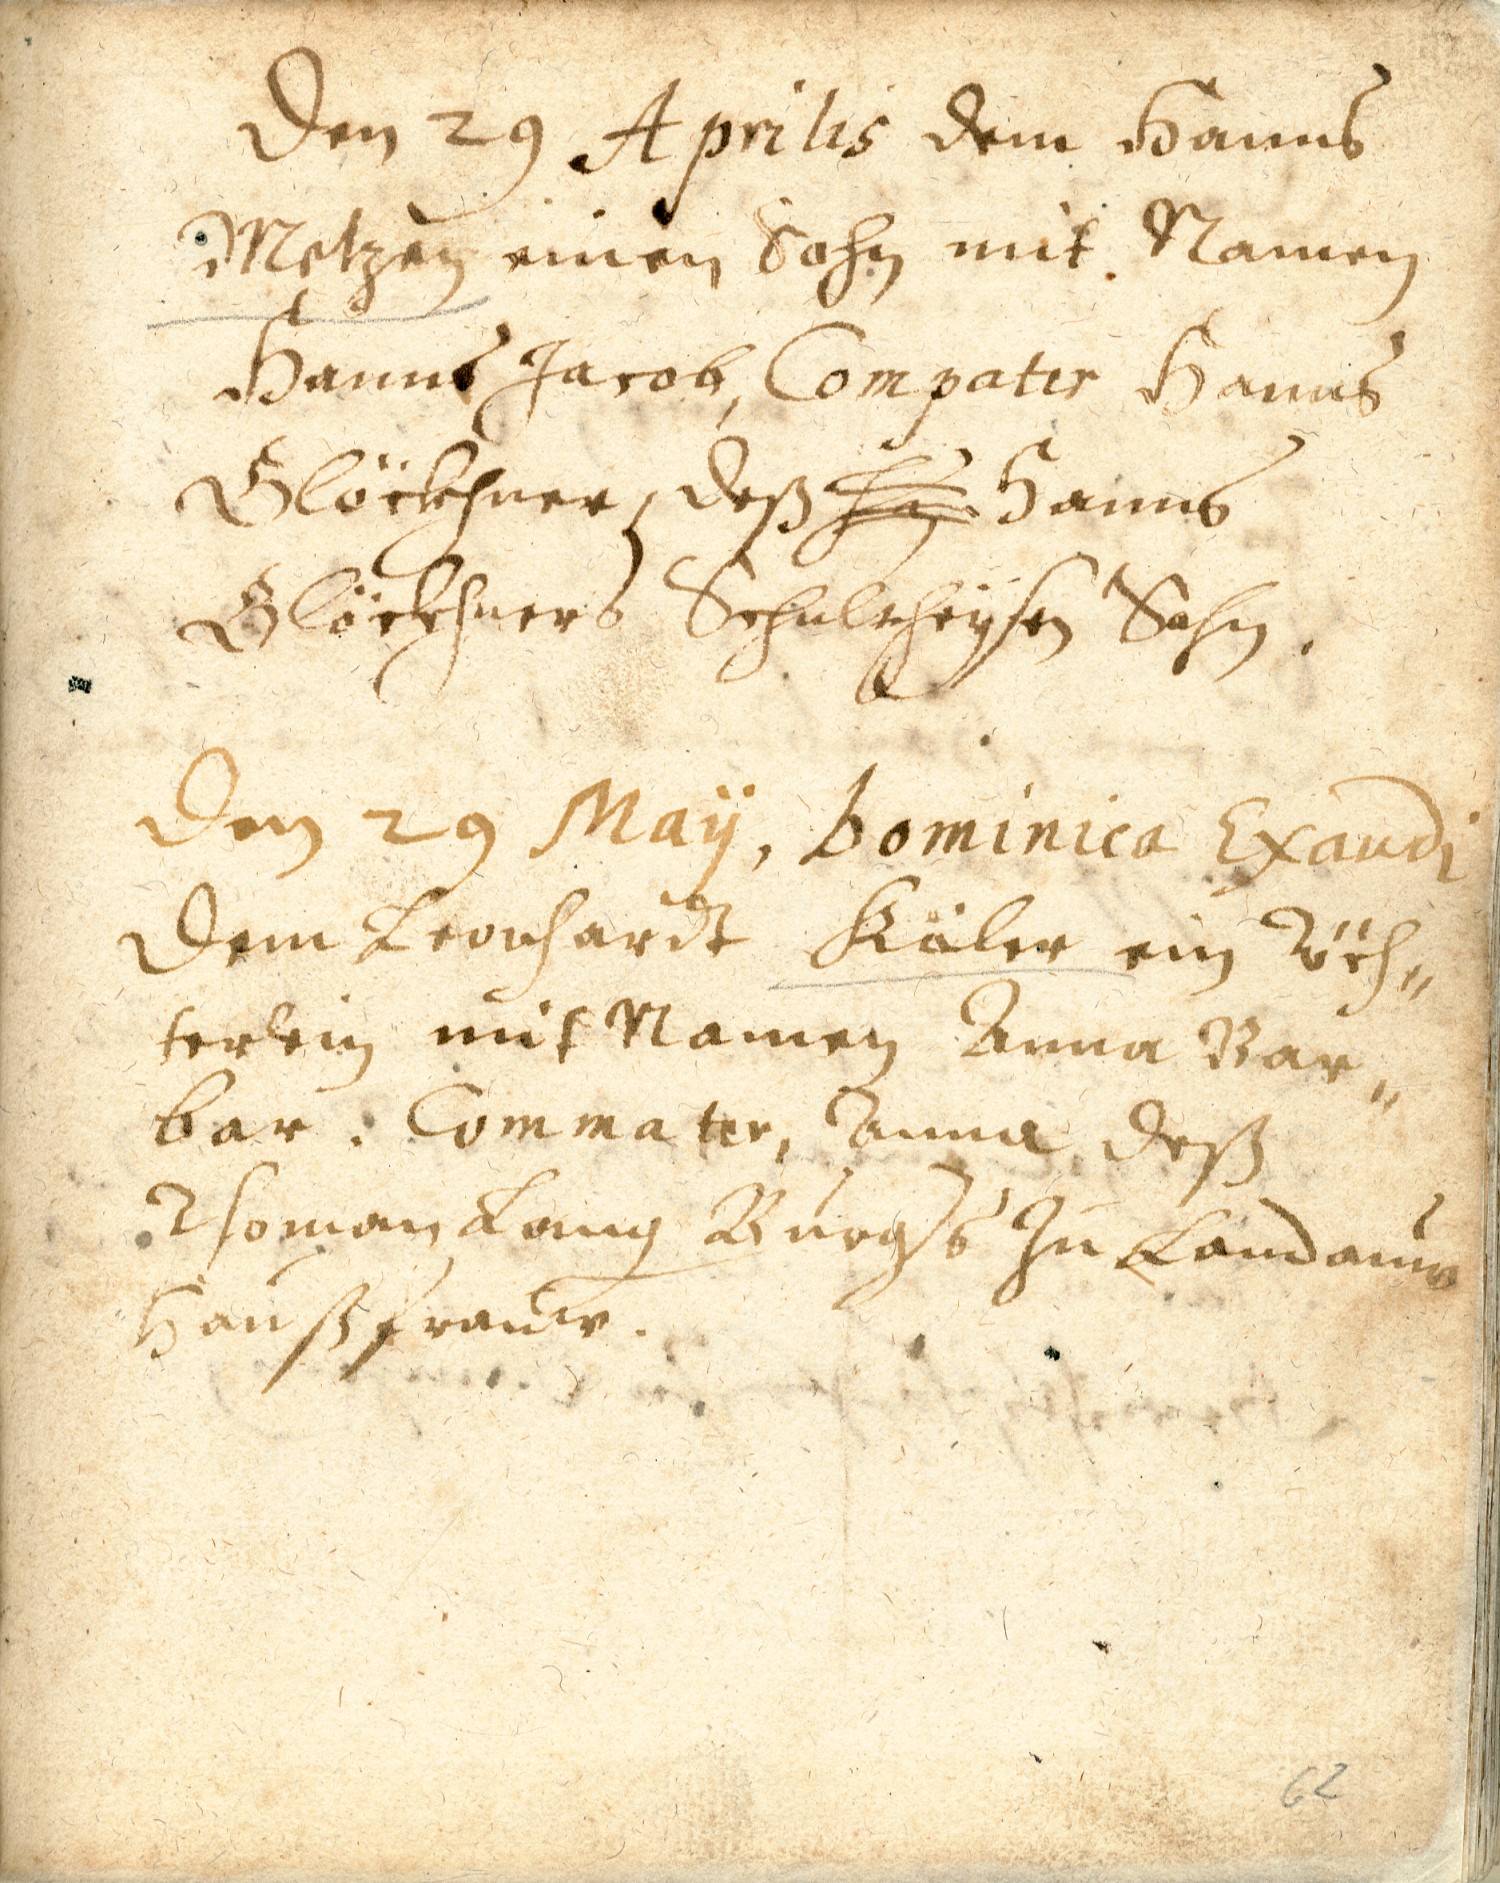 Den 29 Aprilis dem Hanns
Metzen einen Sohn mit Namen
Hanns Jacob, Compater Hanns
Glöckhner, deß Hanns
Glöckhners Schultheysen Sohn.
Den 29 Maÿ, Dominica Exaudi
Dem Leonhardt Käler ein Töch„
terlein mit Namen Anna Bar„
bar. Commater, Anna deß
Thoman Lang Burgers zu Landauw
Haußfrauw.
62